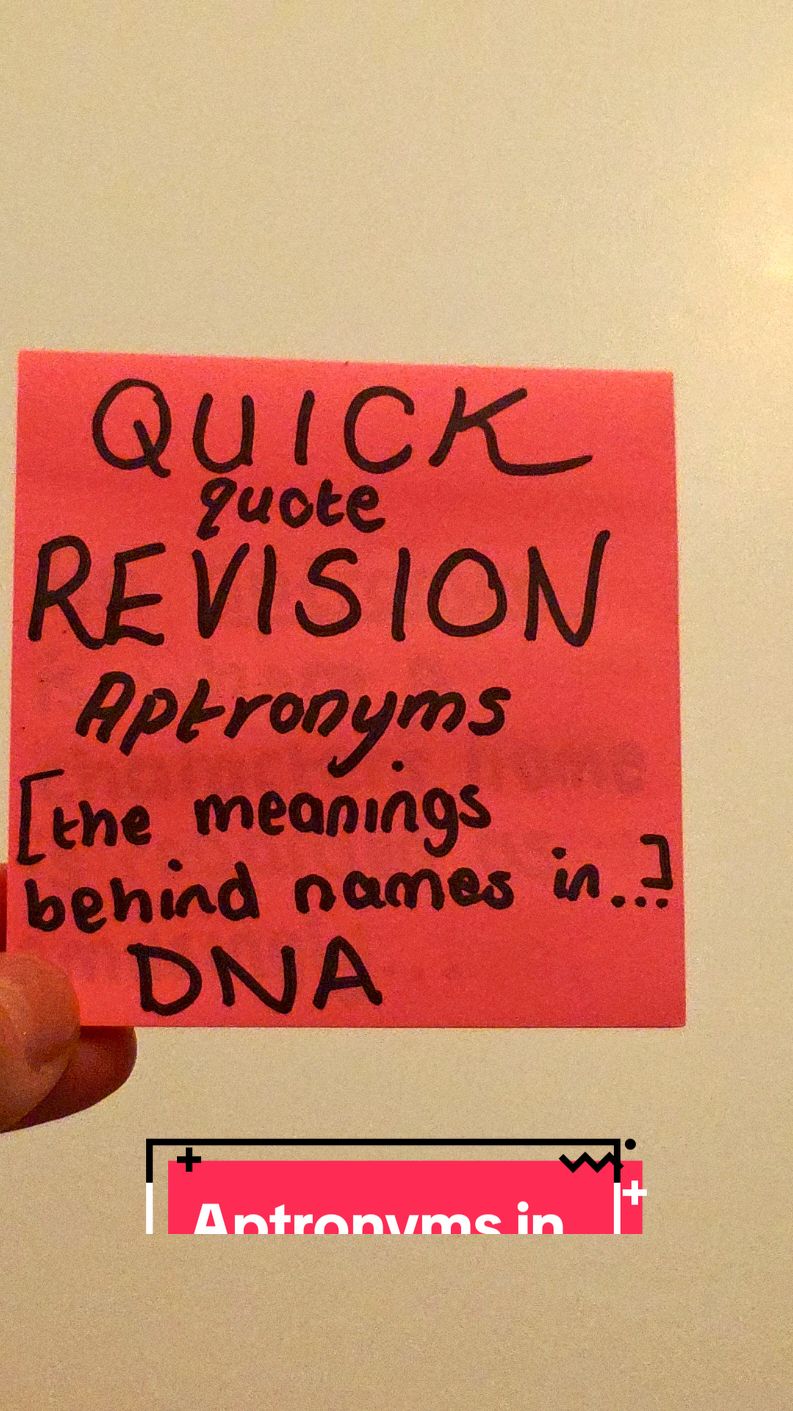 QUICK
quote
REVISION
Aptronyms
[the meanings
behind names in...]
DNA
Aptronyms in